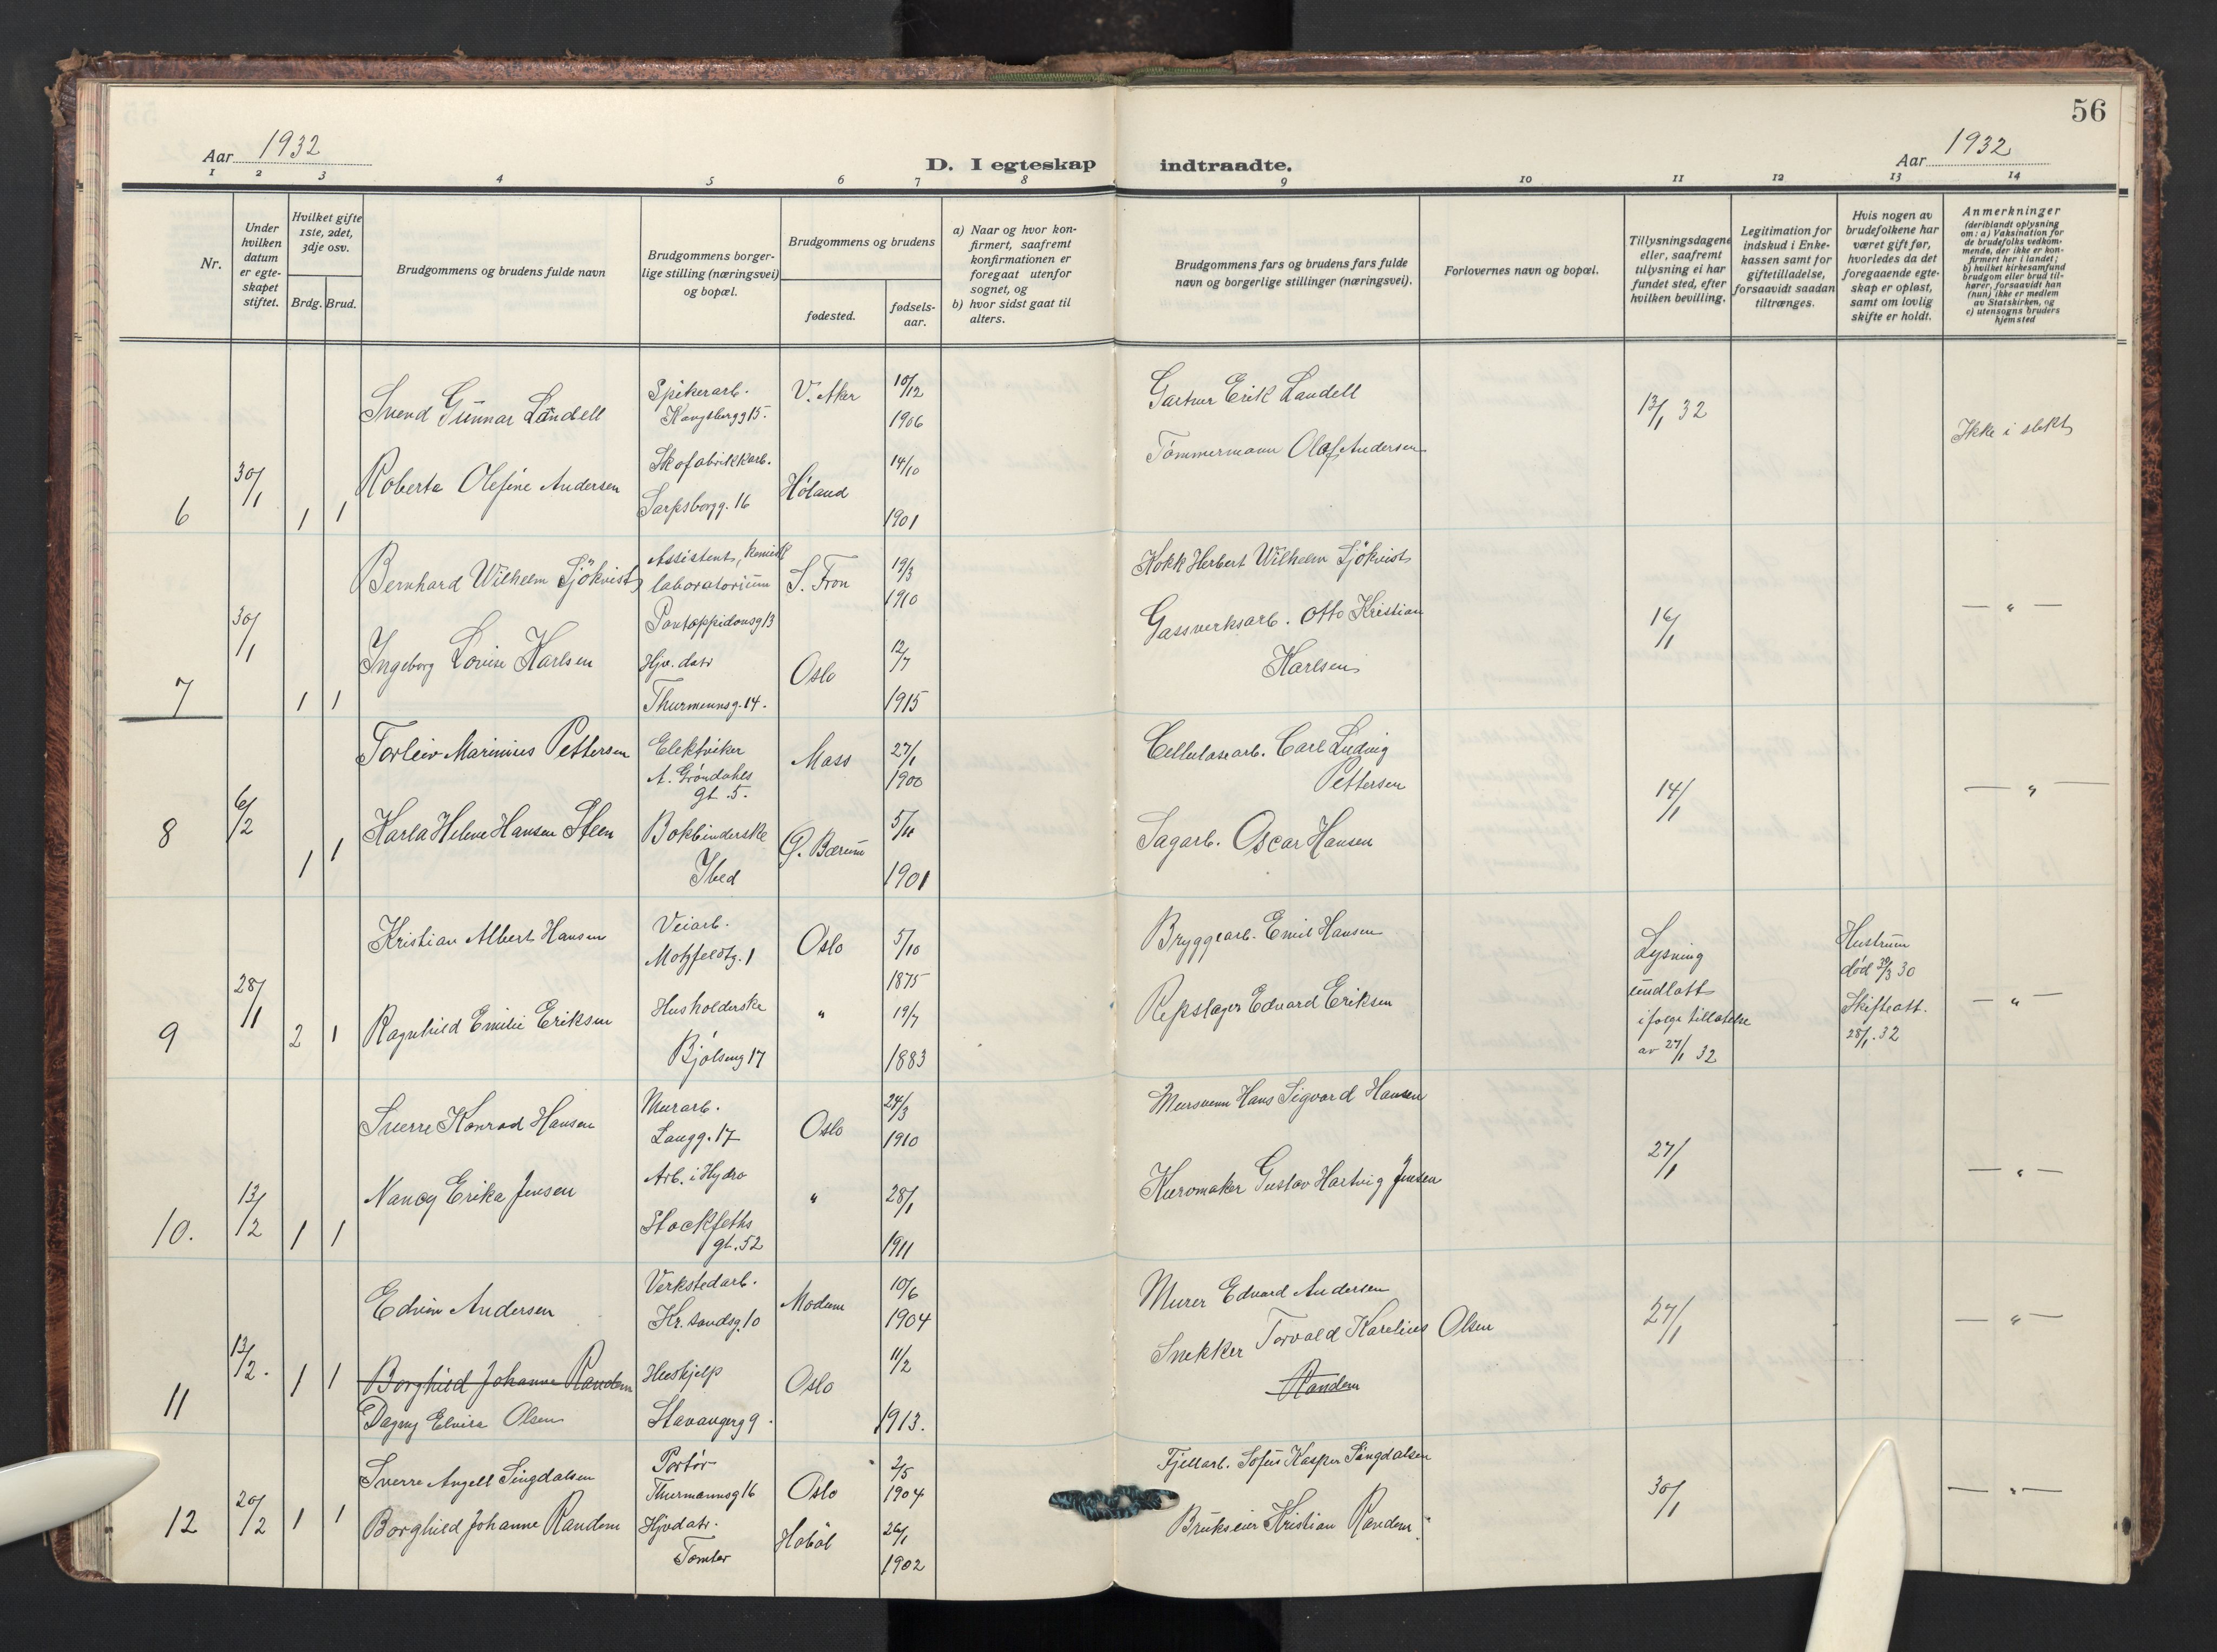 56
Aar 1932
D. I egteskap indtraadte.
Aar 1932
1 2 3 4 5 6 7 8 9 10 11 12 13 14
Nr.
Under hvilken datum er egteskapet stiftet.
Hvilket gifte 1ste, 2det, 3dje osv.
Brdg. Brud.
Brudgommens og brudens fulde navn
Brudgommens borgerlige stilling (næringsvei) og bopæl.
Brudgommens og brudens
fødested.
fødselsaar.
a) Naar og hvor konfirmert, saafremt konfirmationen er foregaat utenfor sognet, og
b) hvor sidst gaat til alters.
Brudgommens fars og brudens fars fulde navn og borgerlige stillinger (næringsvei).
Forlovernes navn og bopæl.
Tillysningsdagene eller, saafremt tillysning ei har fundet sted, efter hvilken bevilling.
Legitimation for indskud i Enkekassen samt for giftetilladelse, forsaavidt saadan tiltrænges.
Hvis nogen av brudefolkene har været gift før, hvorledes da det foregaaende egteskap er opløst, samt om lovlig skifte er holdt.
Anmerkninger (deriblandt oplysning om: a) Vaksination for de brudefolks vedkommende, der ikke er konfirmert her i landet; b) hvilket kirkesamfund brudgom eller brud tilhører, forsaavidt han (hun) ikke er medlem av Statskirken, og c) utensogns bruders hjemsted
6 30/1 1 1
Svend Gunnar Landell
Spikerarb. Kongsbergg 15.
V. Aker
10/12 1906
Gartner Erik Landell
13/1 32
Ikke i slekt
Roberta Olefine Andersen
Skofabrikkarb. Sarpsborgg. 16
Høland
14/10 1901
Tømmermann Olaf Andersen
7 30/1 1 1
Bernhard Wilhelm Sjökvist
Assistent, kemisk laboratorium Pontoppidansg 13
S. Fron
19/3 1910
Kokk Herbert Wilhelm Sjökvist
16/1
— " —
Ingeborg Lovise Karlsen
Hjv. datr Thurmannsg. 14.
Oslo
12/7 1915
Gassverksarb. Otto Kristian Karlsen
8 6/2 1 1
Torleiv Marinius Pettersen
Elektriker A. Grøndahls gt. 5.
Moss
27/1 1900
Cellulosearb. Carl Ludvig Pettersen
14/1
— " —
Karla Helene Hansen Steen
Bokbinderske Ibed
Ø. Bærum
5/11 1901
Sagarb. Oscar Hansen
9 28/1 2 1
Kristian Albert Hansen
Veiarb. Motzfeldtg. 1
Oslo
5/10 1875
Bryggearb. Emil Hansen
Lysning undlatt ifølge tillatelse av 27/1 32
Hustrun død 30/3 30 Skifteatt. 28/1. 32
— " —
Ragnhild Emilie Eriksen
Husholderske Bjølseng 17
"
19/7 1883
Repslager Edvard Eriksen
10. 13/2 1 1
Sverre Konrad Hansen
Murarb. Langg. 17
Oslo
24/3 1910
Mursvenn Hans Sigvard Hansen
27/1
— " —
Nancy Erika Jensen
Arb. i Hydro Stockfleths gt. 52
"
28/1 1911
Kurvmaker Gustav Hartvig Jensen
11 13/2. 1 1
Edvin Andersen
Verkstedarb. Kr. sandsg. 10
Modum
10/6 1904
Murer Edvard Andersen
27/1
— " —
Borghild Johanne Randem
Dagny Elvira Olsen
Hushjelp Stavangerg 9.
Oslo
11/2 1913.
Snekker Torvald Karelius Olsen
Randem
12 20/2 1 1
Sverre Angell Singdalsen
Portør Thurmannsg 16
Oslo
2/5 1904
Fjellarb. Sofus Kasper Singdalsen
30/1
— " —
Borghild Johanne Randem
Hjvdatr. Tomter
Hobøl
26/1 1902
Brukseier Kristian Randem.